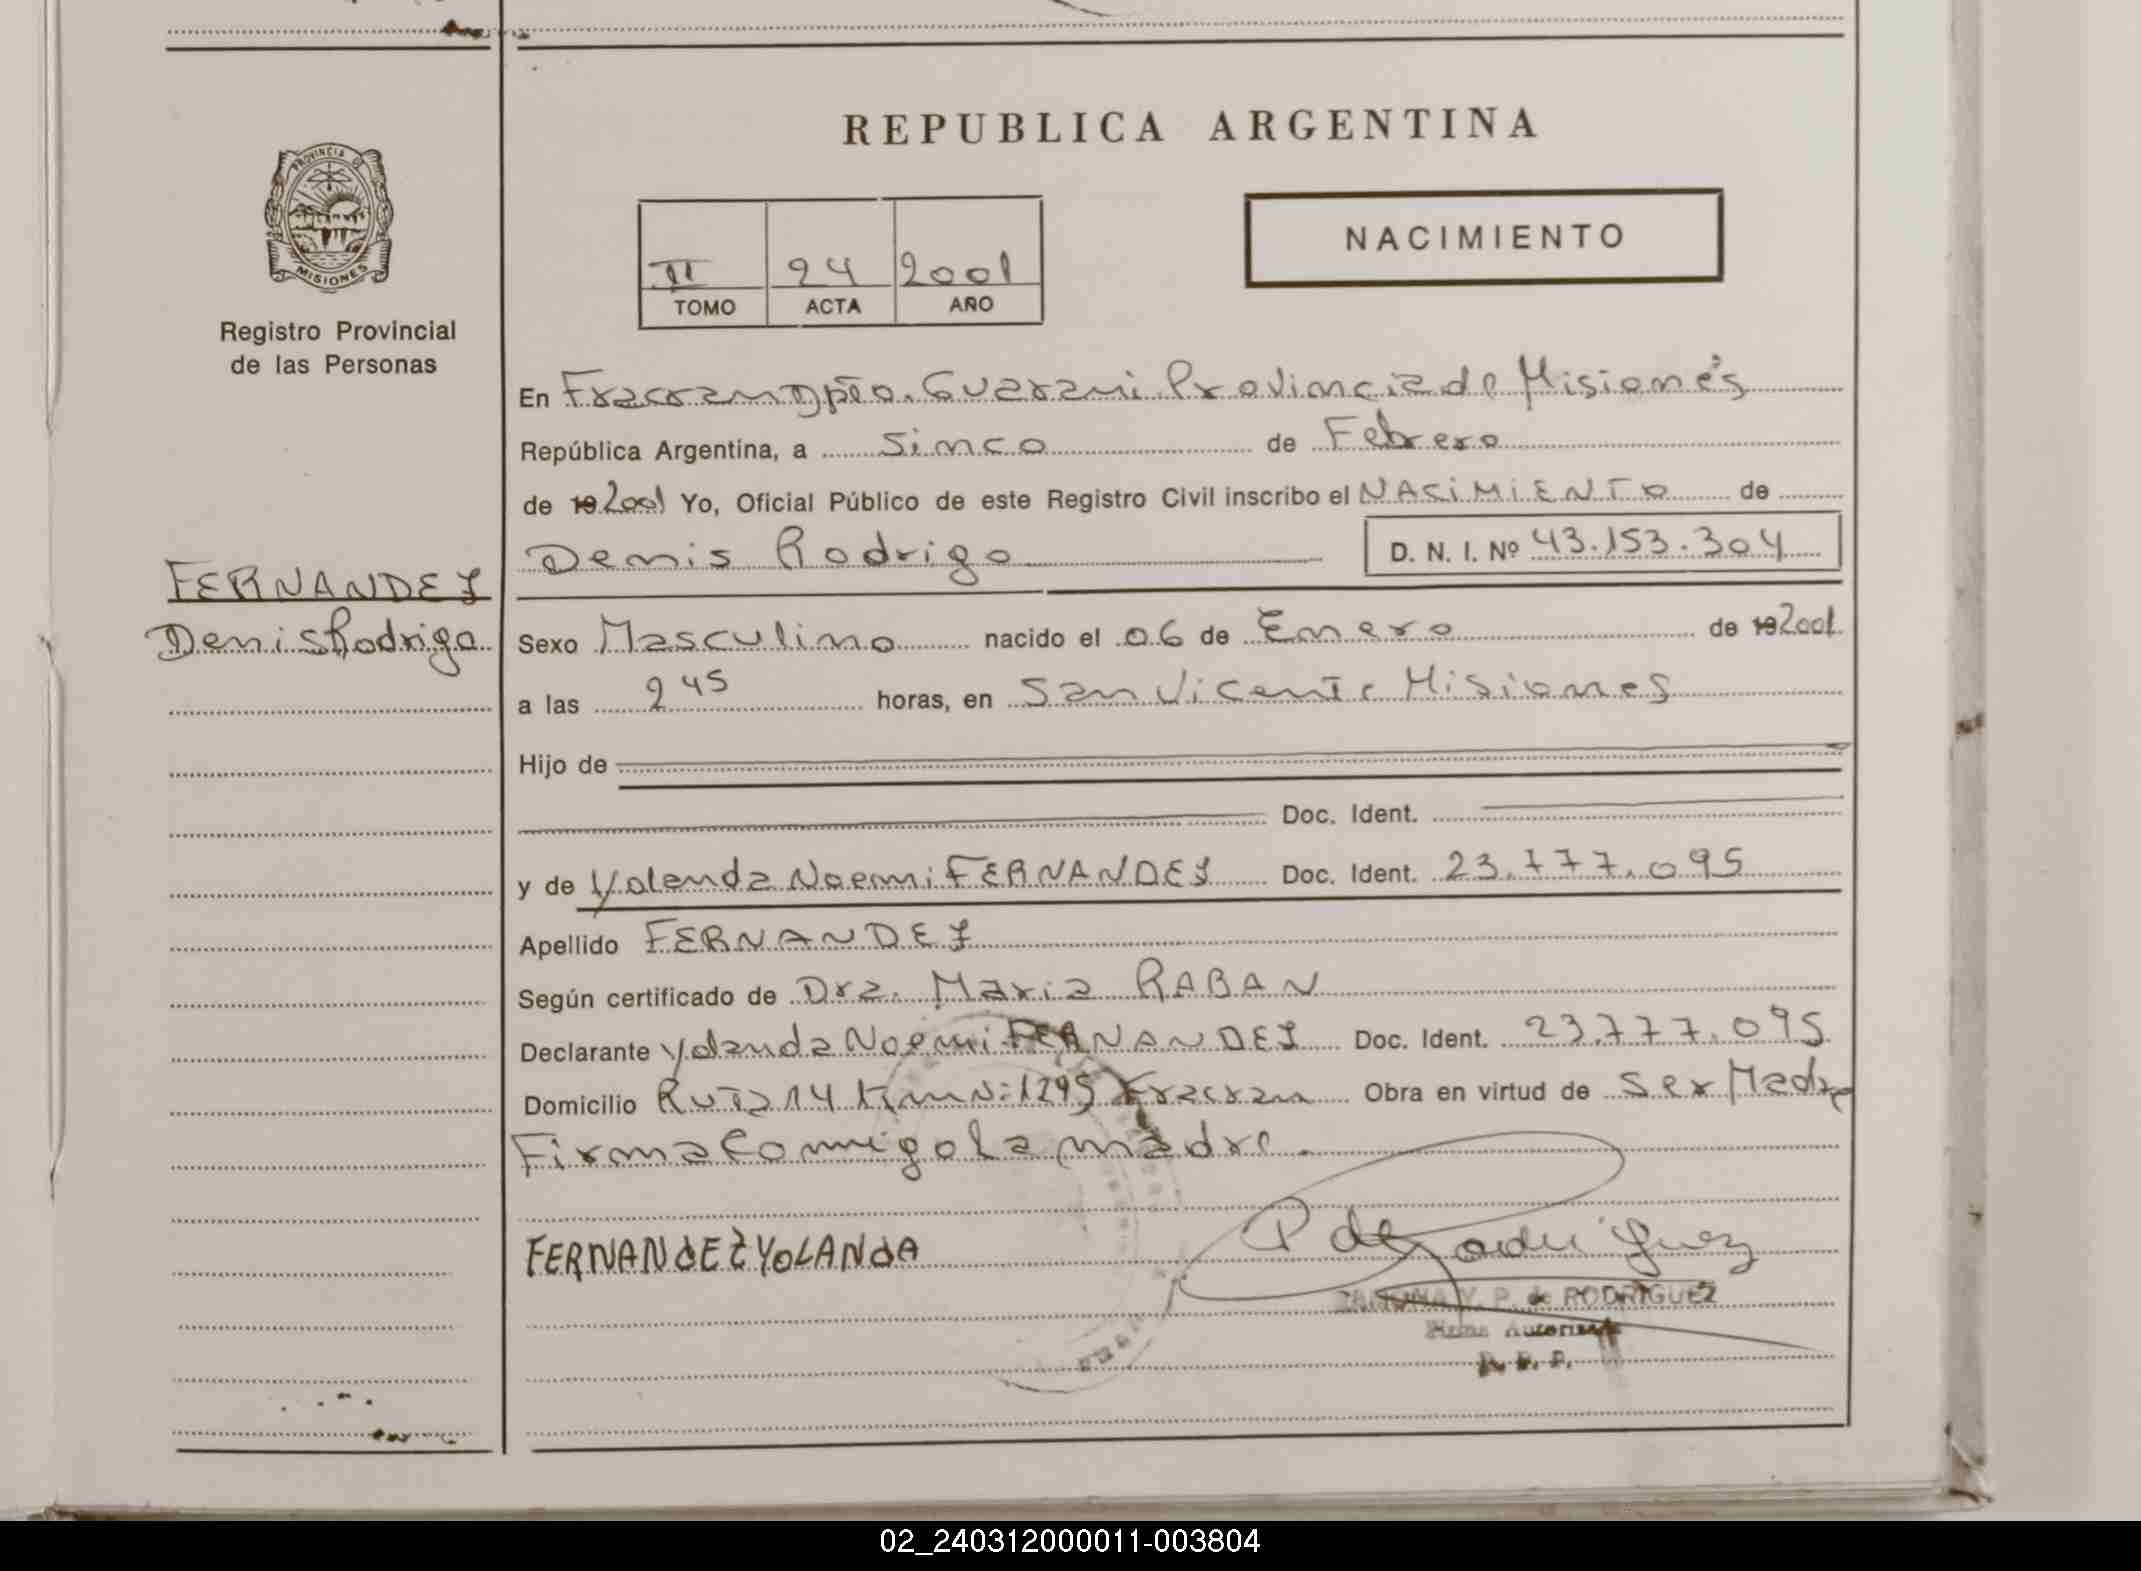 REPUBLICA ARGENTINA
PROVINCIA DE
MISIONES
Registro Provincial
de las Personas
II 24 2001
TOMO ACTA AÑO
NACIMIENTO
En Fracran Dpto. Guarani Provincia de Misiones
República Argentina, a Sinco de Febrero
de 19 2001 Yo, Oficial Público de este Registro Civil inscribo el NACIMIENTO de
Denis Rodrigo D. N. I. Nº 43.153.304
FERNANDEZ
Denis Rodrigo
Sexo Masculino nacido el 06 de Enero de 19 2001
a las 2 45 horas, en San Vicente Misiones
Hijo de
Doc. Ident.
y de Yolanda Noemi FERNANDEZ Doc. Ident. 23.777.095
Apellido FERNANDEZ
Según certificado de Dra. Maria RABAN
Declarante Yolanda Noemi FERNANDEZ Doc. Ident. 23.777.095
Domicilio Ruta 14 Km N: 1295 Fracran Obra en virtud de Ser Madre
Firma Conmigo La madre.
FERNANdEZ YOLANdA
P de Rodriguez
RAMONA Y. P. de RODRIGUEZ
Firma Autorizada
R. P. P.
02_240312000011-003804